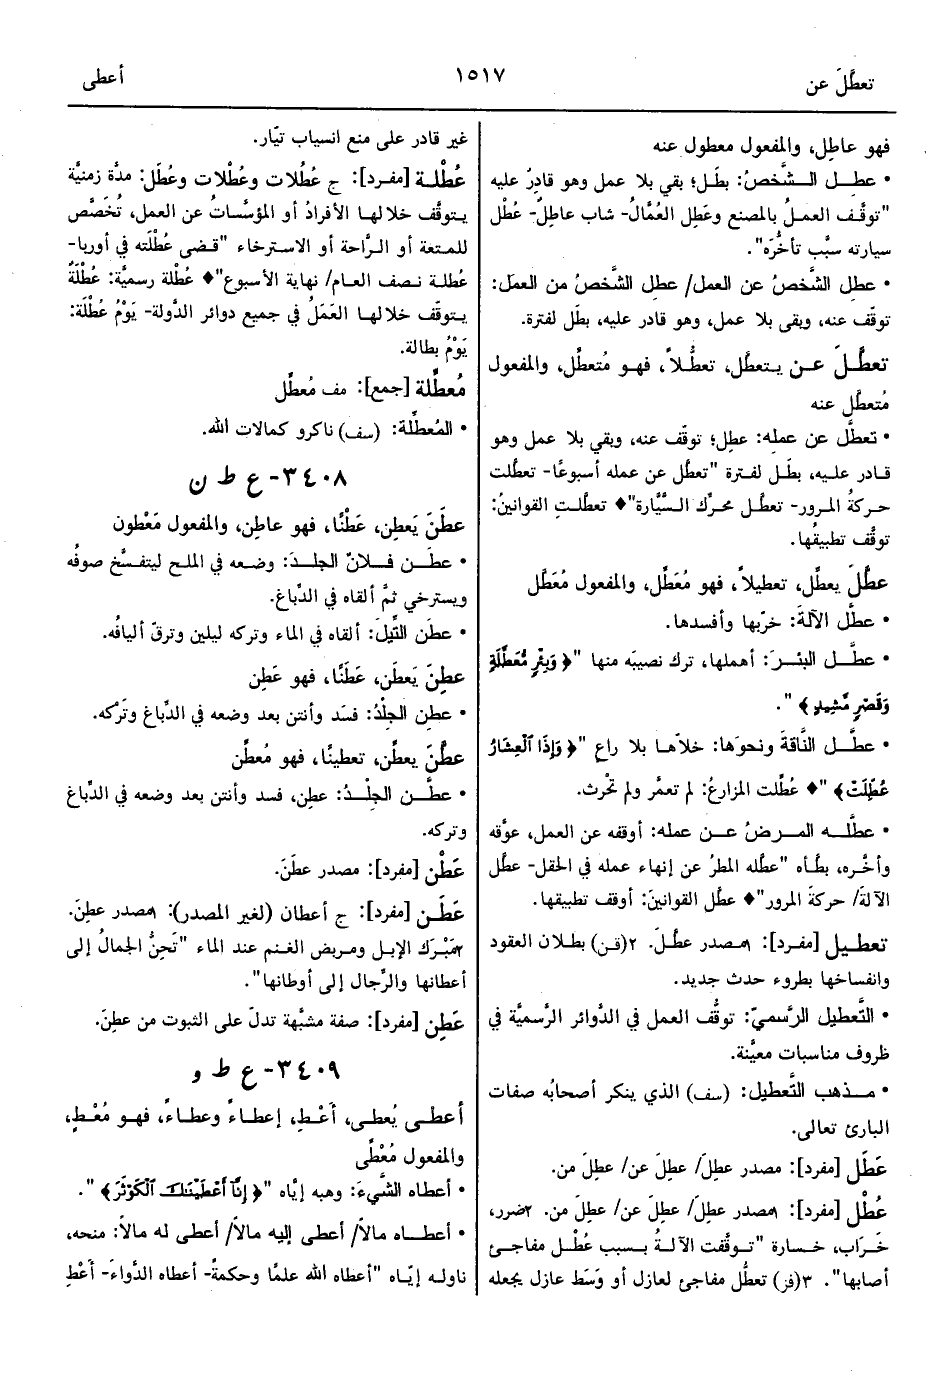 تعطَّلَ عن
١٥١٧
أعطى
فهو عاطِل، والمفعول معطول عنه
• عطِـل الـشَّخصُ: بطَل؛ بقي بلا عمل وهو قادِرٌ عليه
"توقَّف العملُ بالمصنع وعَطِل العُمَّالُ- شاب عاطِلٌ- عُطْل
سيارته سبَّب تأخُّرَه".
• عطِل الشَّخصُ عن العمل/ عطِل الشَّخصُ من العمل:
توقّف عنه، وبقى بلا عمل، وهو قادر عليه، بطَل لفترة.
تعطَّلَ عـن يـتعطَّل، تعطُّلاً، فهـو مُتعطِّل، والمفعول
مُتعطَّل عنه
• تعطَّل عن عمله: عطِل؛ توقّف عنه، وبقي بلا عمل وهو
قـادر علـيه، بطَل لفترة "تعطَّل عن عمله أسبوعًا- تعطَّلت
حـركةُ المرور- تعطَّل محرِّك الـسَّيَّارة"♦ تعطَّلتِ القوانينُ:
توقُّف تطبيقُها.
عطَّلَ يعطِّل، تعطيلاً، فهو مُعَطِّل، والمفعول مُعَطَّل
• عطَّل الآلةَ: خرّبها وأفسدها.
• عطَّـل البئـرَ: أهملها، ترك نصيبَه منها "﴿ وَبِئْرٍ مُّعَطَّلَةٍ
وَقَصْرٍ مَّشِيدٍ ﴾ ".
• عطَّـل النَّاقةَ ونحوَها: خلاّها بلا راعٍ "﴿ وَإِذَا ٱلْعِشَارُ
عُطِّلَتْ ﴾ "♦ عُطِّلت المزارعُ: لم تعمَّر ولم تُحْرث.
• عطَّلـه المـرضُ عـن عمله: أوقفه عن العمل، عوَّقه
وأخَّـره، بطَّأه "عطَّله المطرُ عن إنهاء عمله في الحقل- عطَّل
الآلةَ/ حركةَ المرور"♦ عطَّل القوانينَ: أوقف تطبيقَها.
تعطـيل [مفرد]: ١مصدر عطَّلَ. ٢(قن) بطلان العقود
وانفساخها بطروء حدث جديد.
• التَّعطيل الرَّسميّ: توقُّف العمل في الدَّوائر الرَّسميَّة في
ظروف مناسبات معيَّنة.
• مـذهب التَّعطيل: (سف) الذي ينكر أصحابُه صفات
البارئ تعالى.
عَطَل [مفرد]: مصدر عطِلَ/ عطِلَ عن/ عطِلَ من.
عُطْل [مفرد]: ١مصدر عطِلَ/ عطِلَ عن/ عطِلَ من. ٢ضرر،
خَـرَاب، خـسارة "تـوقَّفت الآلـةُ بـسبب عُطْـل مفاجئ
أصابها". ٣(فز) تعطُّل مفاجئ لعازل أو وَسَط عازل يجعله
غير قادر على منع انسياب تيّار.
عُطْلـة [مفرد]: ج عُطُلات وعُطْلات وعُطَل: مدَّة زمنيَّة
يـتوقَّف خلالـها الأفرادُ أو المؤسَّساتُ عن العمل، تُخَصَّص
للمـتعة أو الـرَّاحة أو الاسـترخاء "قـضى عُطْلَته في أوربا-
عُطلـة نـصف العـام/ نهاية الأسبوع"♦ عُطْلة رسميَّة: عُطْلَةٌ
يـتوقَّف خلالهـا العَمَلُ في جميع دوائر الدَّولة- يَوْمُ عُطْلَة:
يَوْمُ بطالة.
مُعطِّلة [جمع]: مف مُعطِّل
• المُعطِّلة: (سف) ناكرو كمالات الله.
٣٤٠٨- ع ط ن
عطَنَ يَعطِن، عَطْنًا، فهو عاطِن، والمفعول مَعْطون
• عطَـن فـلانٌ الجلـدَ: وضـعه في الملـح ليتفـسَّخ صوفُه
ويسترخي ثمّ ألقاه في الدِّباغ.
• عطَن التِّيلَ: ألقاه في الماء وتركه ليلين وترقّ أليافُه.
عطِنَ يَعطَن، عَطَنًا، فهو عَطِن
• عطِن الجِلْدُ: فسَد وأنتن بعد وضعه في الدِّباغ وتَرْكه.
عطَّنَ يعطِّن، تعطينًا، فهو مُعطِّن
• عطَّـن الجِلْـدُ: عطِن، فسد وأنتن بعد وضعه في الدِّباغ
وتركه.
عَطْن [مفرد]: مصدر عطَنَ.
عَطَـن [مفرد]: ج أعطان (لغير المصدر): ١مصدر عطِنَ.
٢مَبْرَك الإبـل ومـربض الغـنم عند الماء "تَحِنُّ الجمالُ إلى
أعطانها والرِّجال إلى أوطانها".
عَطِن [مفرد]: صفة مشبَّهة تدلّ على الثبوت من عطِنَ.
٣٤٠٩- ع ط و
أعطـى يُعطـي، أَعْـطِ، إعطـاءً وعطـاءً، فهـو مُعْـطٍ،
والمفعول مُعْطًى
• أعطاه الشَّيءَ: وهبه إيَّاه "﴿ إِنَّآ أَعْطَيْنَٰكَ ٱلْكَوْثَرَ ﴾ ".
• أعطـاه مالاً/ أعطى إليه مالاً/ أعطى له مالاً: منحه،
ناولـه إيّـاه "أعطاه الله علمًا وحكمةً- أعطاه الدَّواءَ- أَعْطِ